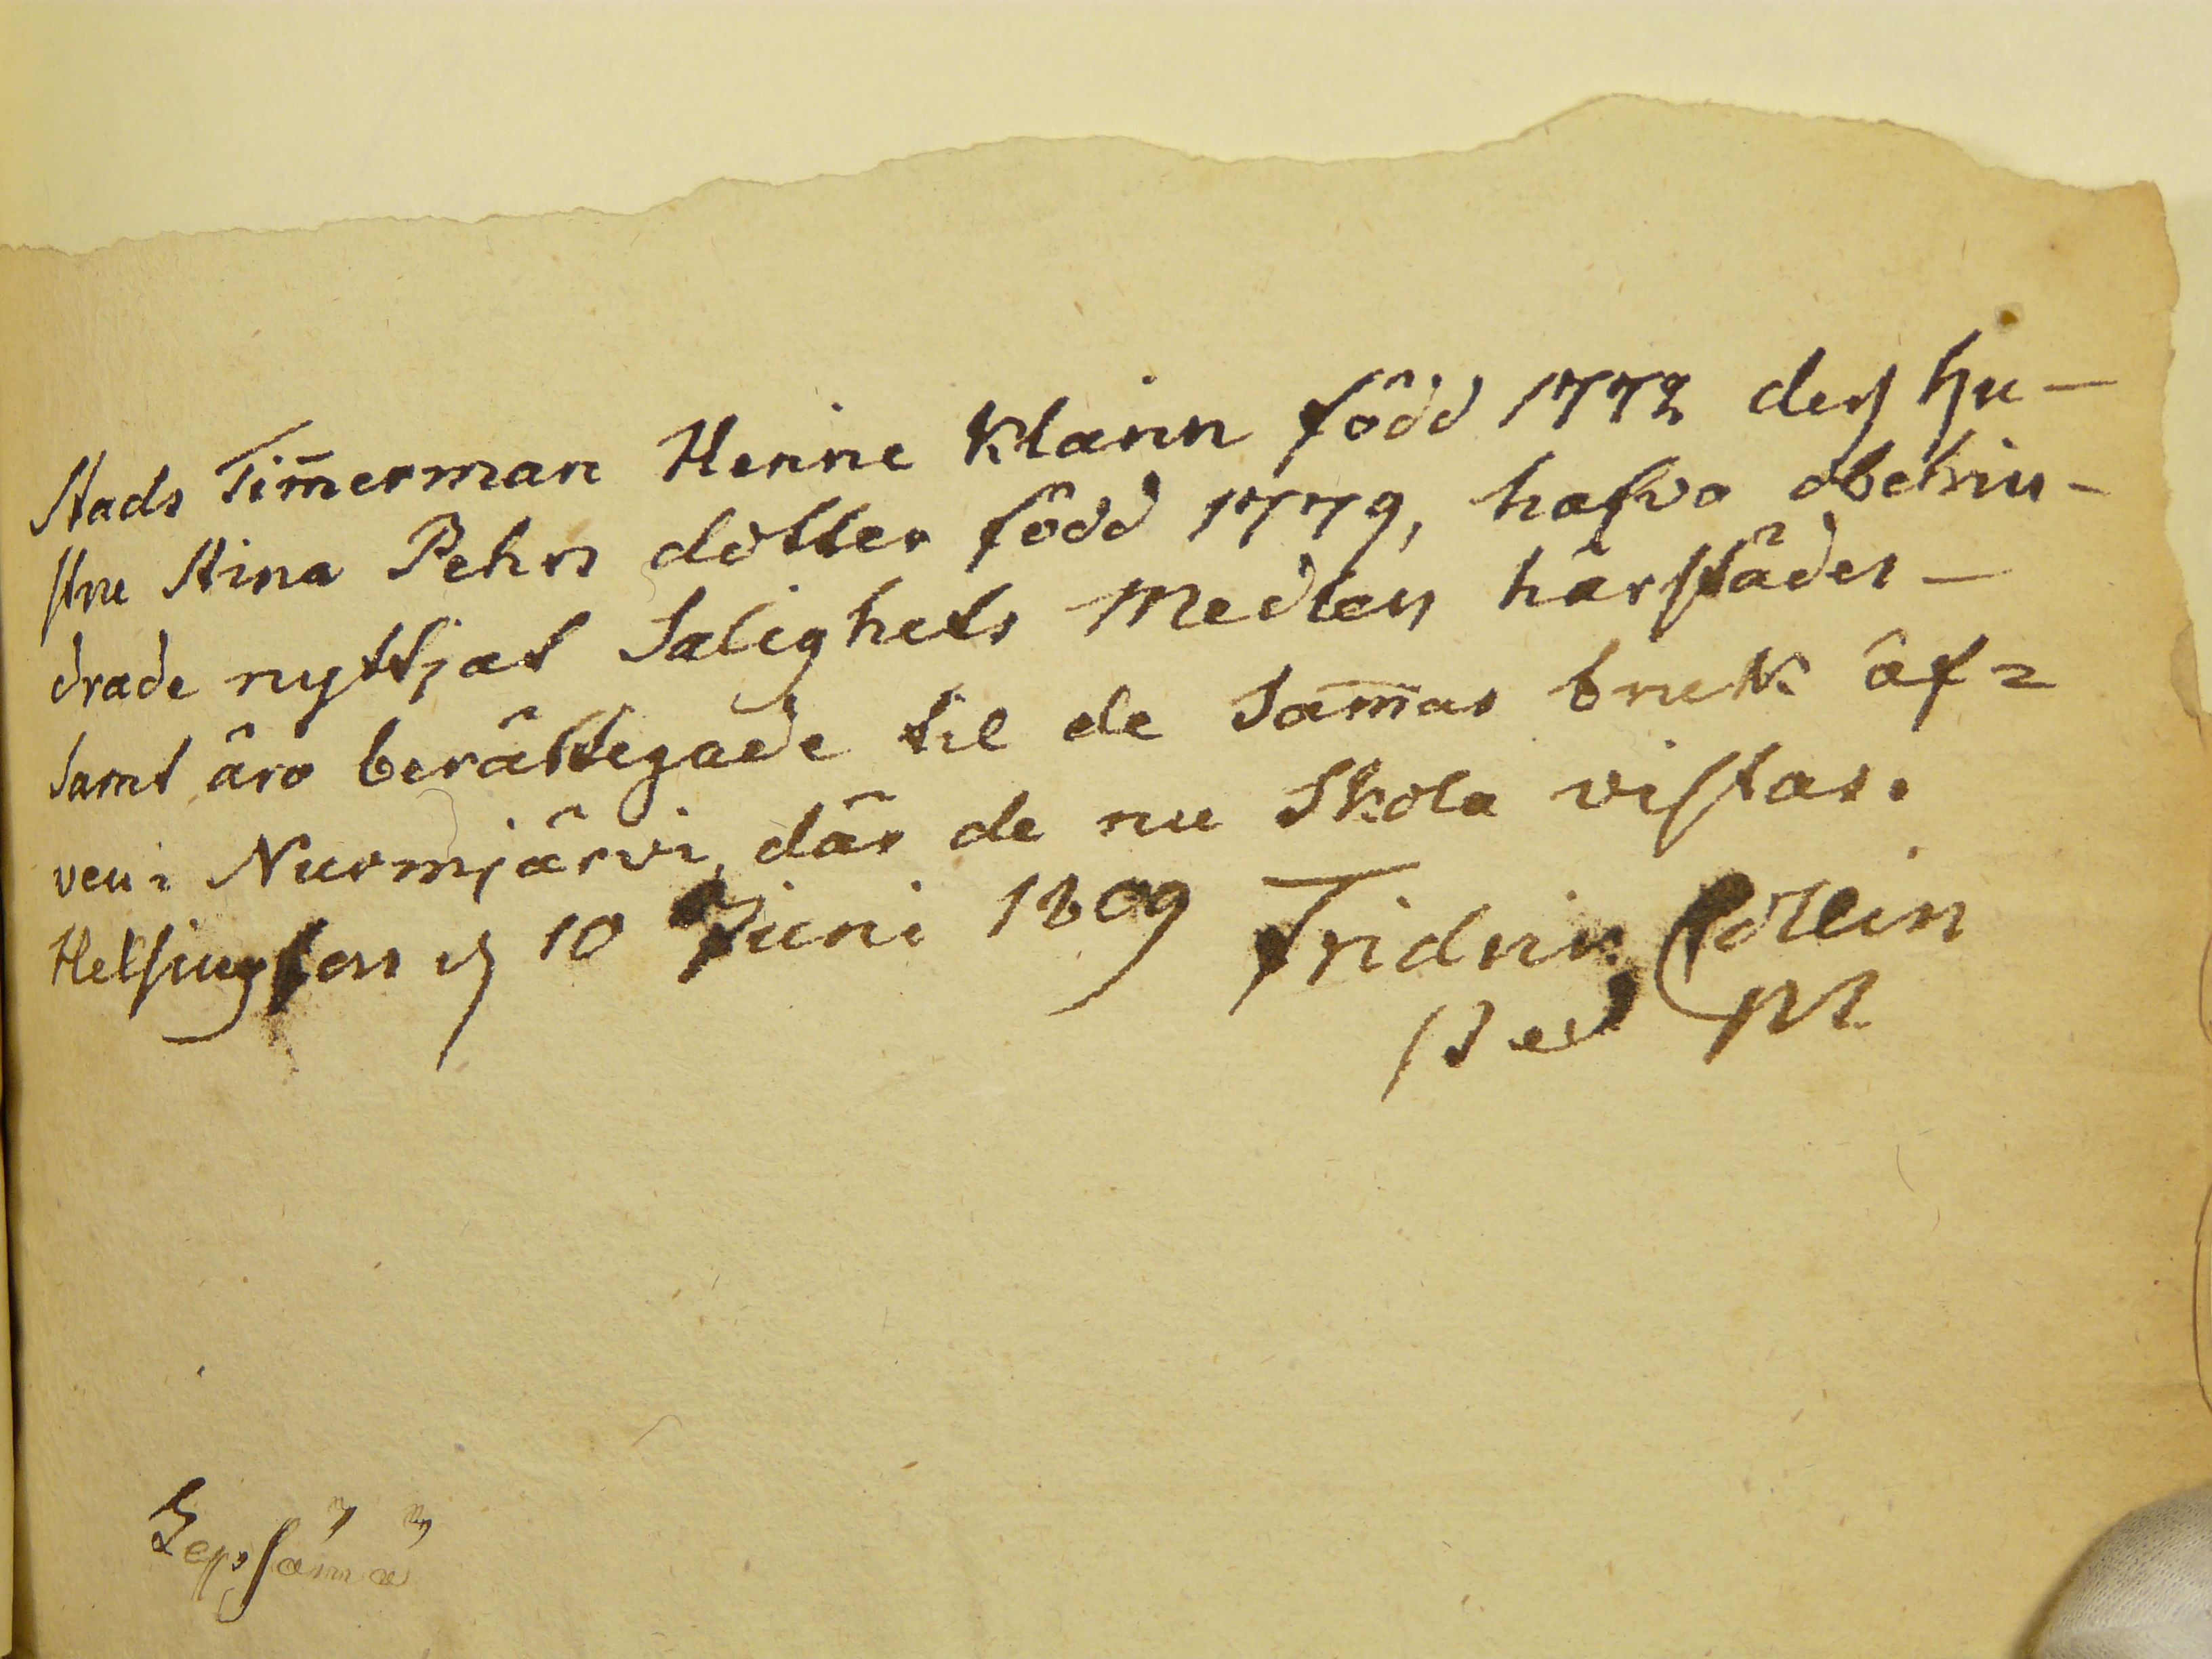 Stads Tim̄erman Henric Klarin född 1772 dess hu-
stru Stina Pehrs dotter född 1779, hafva obehin-
drade nyttjat Salighets Medlen härstädes-
samt äro berättegade til de Sam̄as bruk äf=
ven i Nurmijärvi, där de nu skola vistas.
Helsingfors d 10 Juni 1809 Fridric Collin
M
Lepsämä